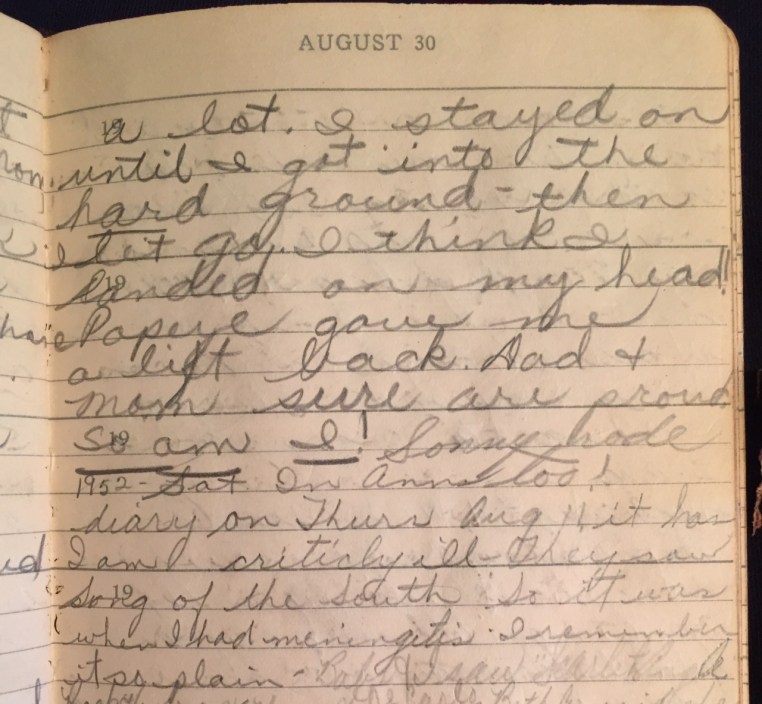 AUGUST 30
a lot. I stayed on
until I got into the
hard ground - then
I let go. I think I
landed on my head!
Popeye gave me
a lift back. Dad +
mom sure are proud
So am I! Sonny rode
1952 - Sat. In Anns too!
diary on Thurs Aug 11 it has
I am criticly ill - They saw
Song of the South. So it was
when I had meningitis. I remember
it so plain -